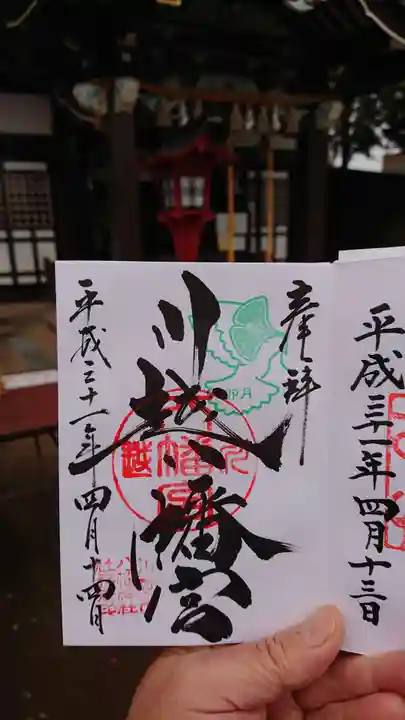 奉拝
川越八幡宮
平成三十一年四月十四日
卯月
平成三十一年四月十三日